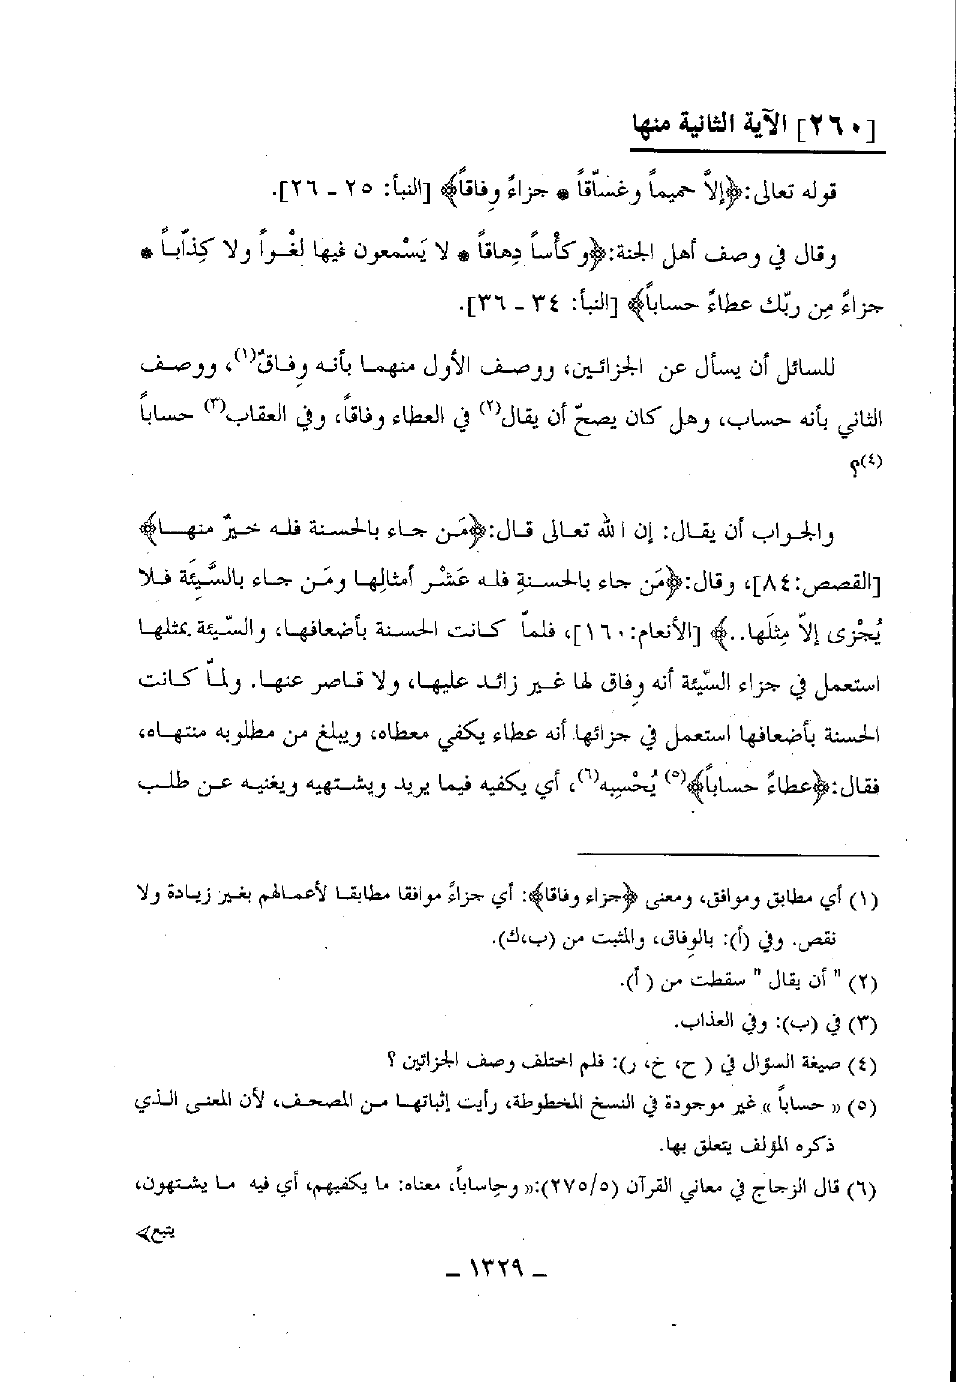 [٢٦٠] الآية الثانية منها
قوله تعالى: ﴿إلاَّ حميماً وغسَّاقاً * جزاءً وِفاقاً﴾ [النبأ: ٢٥ - ٢٦].
وقال في وصف أهل الجنة: ﴿وكأساً دِهاقاً * لا يَسْمعون فيها لغْواً ولا كِذّاباً *
جزاءً مِن ربّك عطاءً حساباً﴾ [النبأ: ٣٤ - ٣٦].
للسائل أن يسأل عن الجزائين، ووصف الأول منهما بأنه وِفاقٌ(١)، ووصف
الثاني بأنه حساب، وهل كان يصحّ أن يقال(٢) في العطاء وفاقاً، وفي العقاب(٣) حساباً
(٤)؟
والجواب أن يقال: إن الله تعالى قال: ﴿مَن جاء بالحسنة فله خيرٌ منها﴾
[القصص:٨٤]، وقال: ﴿مَن جاء بالحسنةِ فله عَشْر أمثالِها ومَن جاء بالسَّيِّئَة فلا
يُجْزى إلاّ مِثلَها..﴾ [الأنعام:١٦٠]، فلماّ كانت الحسنة بأضعافها، والسّيئة بمثلها
استعمل في جزاء السّيئة أنه وِفاق لها غير زائد عليها، ولا قاصر عنها. ولمّا كانت
الحسنة بأضعافها استعمل في جزائها أنه عطاء يكفي معطاه، ويبلغ من مطلوبه منتهاه،
فقال: ﴿عطاءً حساباً﴾(٥) يُحْسِبه(٦)، أي يكفيه فيما يريد ويشتهيه ويغنيه عن طلب
(١) أي مطابق وموافق، ومعنى ﴿جزاء وفاقا﴾: أي جزاءً موافقا مطابقا لأعمالهم بغير زيادة ولا
نقص. وفي (أ): بالوِفاق، والمثبت من (ب،ك).
(٢) " أن يقال " سقطت من ( أ).
(٣) في (ب): وفي العذاب.
(٤) صيغة السؤال في ( ح، خ، ر): فلم اختلف وصف الجزائين ؟
(٥) « حساباً » غير موجودة في النسخ المخطوطة، رأيت إثباتها من المصحف، لأن المعنى الذي
ذكره المؤلف يتعلق بها.
(٦) قال الزجاج في معاني القرآن (٢٧٥/٥): « وحِاساباً، معناه: ما يكفيهم، أي فيه ما يشتهون،
يتبع>
ـ ١٣٢٩ ـ